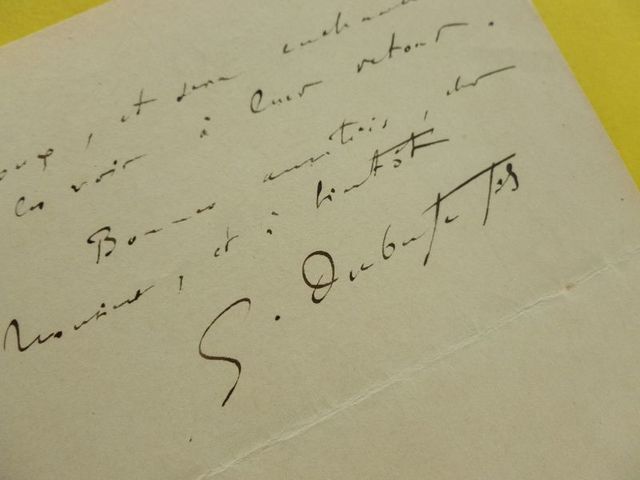 , et sera enchanté
les voir à leur retour.
Bonnes amitiés, cher
Monsieur, et à bientôt
G. Dubufe fils